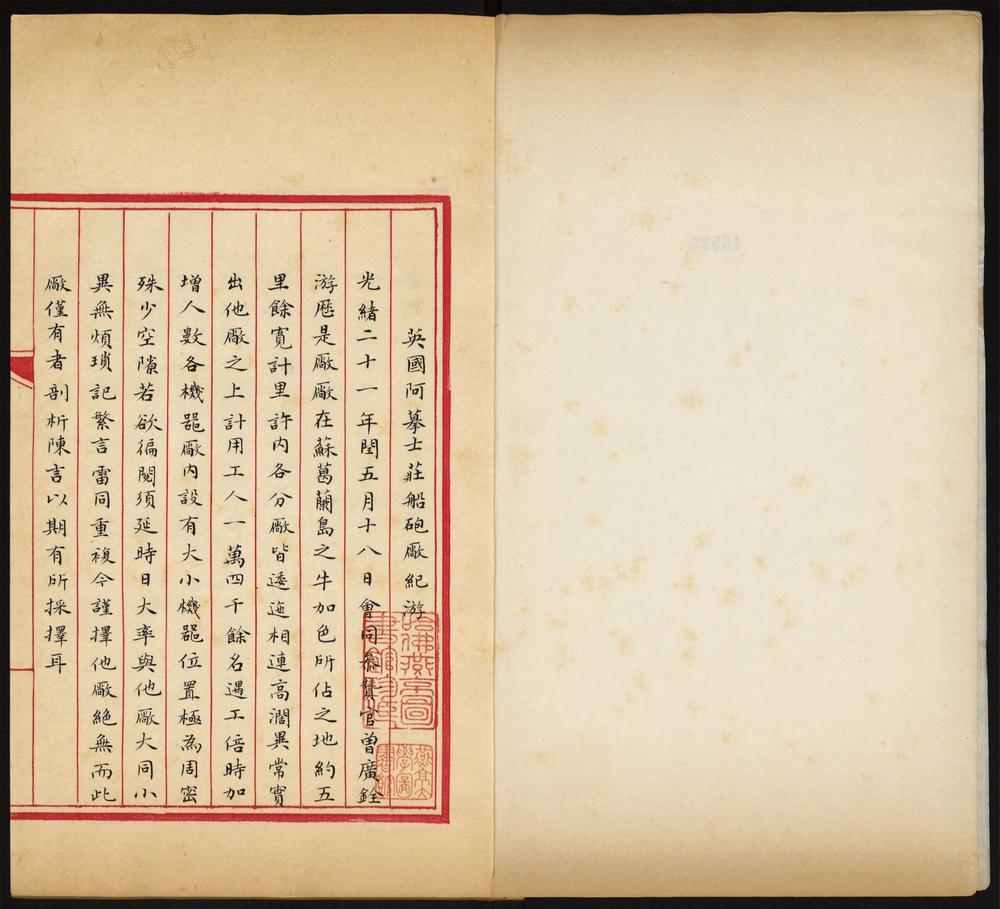 英國阿摹士莊船砲厰紀游
光緒二十一年閏五月十八日會同叅贊官曾廣銓
游歷是厰厰在蘇葛蘭島之牛加色所佔之地約五
里餘寬計里許內各分厰皆逶迤相連高濶異常實
出他厰之上計用工人一萬四千餘名遇工倍時加
增人數各機器厰內設有大小機器位置極為周密
殊少空隙若欲徧閱須延時日大率與他厰大同小
異無煩瑣記繁言雷同重複今謹擇他厰絕無而此
厰僅有者剖析陳言以期有所採擇耳
哈佛燕京圖
書館珍藏
燕京大
學圖
書館